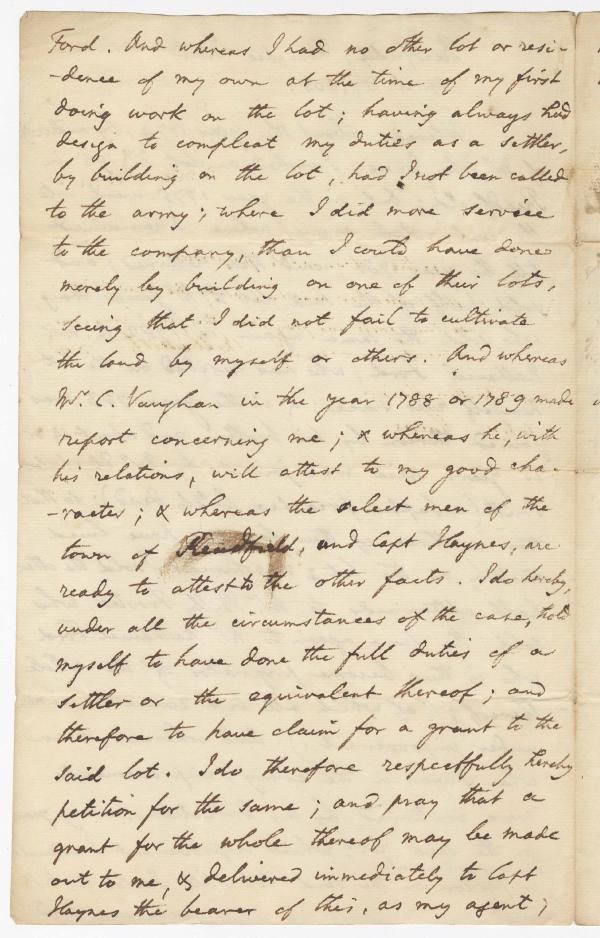 Ford. And whereas I had no other lot or resi-
-dence of my own at the time of my first
doing work on the lot; having always had
design to compleat my duties as a settler,
by building on the lot, had I not been called
to the army; where I did more service
to the company, than I could have done
merely by building on one of their lots,
seeing that I did not fail to cultivate
the land by myself or others. And whereas
Mr. C. Vaughan in the year 1788 or 1789 made
report concerning me; & whereas he, with
his relations, will attest to my good cha-
-racter; & whereas the select men of the
town of Readfield, and Capt Haynes, are
ready to attest to the other facts. I do hereby,
under all the circumstances of the case, hold
myself to have done the full duties of a
settler or the equivalent thereof; and
therefore to have claim for a grant to the
said lot. I do therefore respectfully hereby
petition for the same; and pray that a
grant for the whole thereof may be made
out to me, & delivered immediately to Capt
Haynes the bearer of this, as my agent;